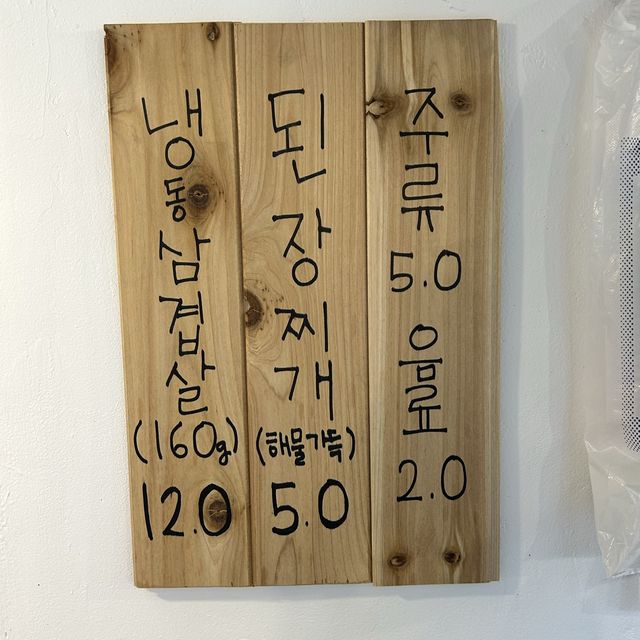 냉동삼겹살
(160g)
12.0
된장찌개
(해물가득)
5.0
주류
5.0
음료
2.0